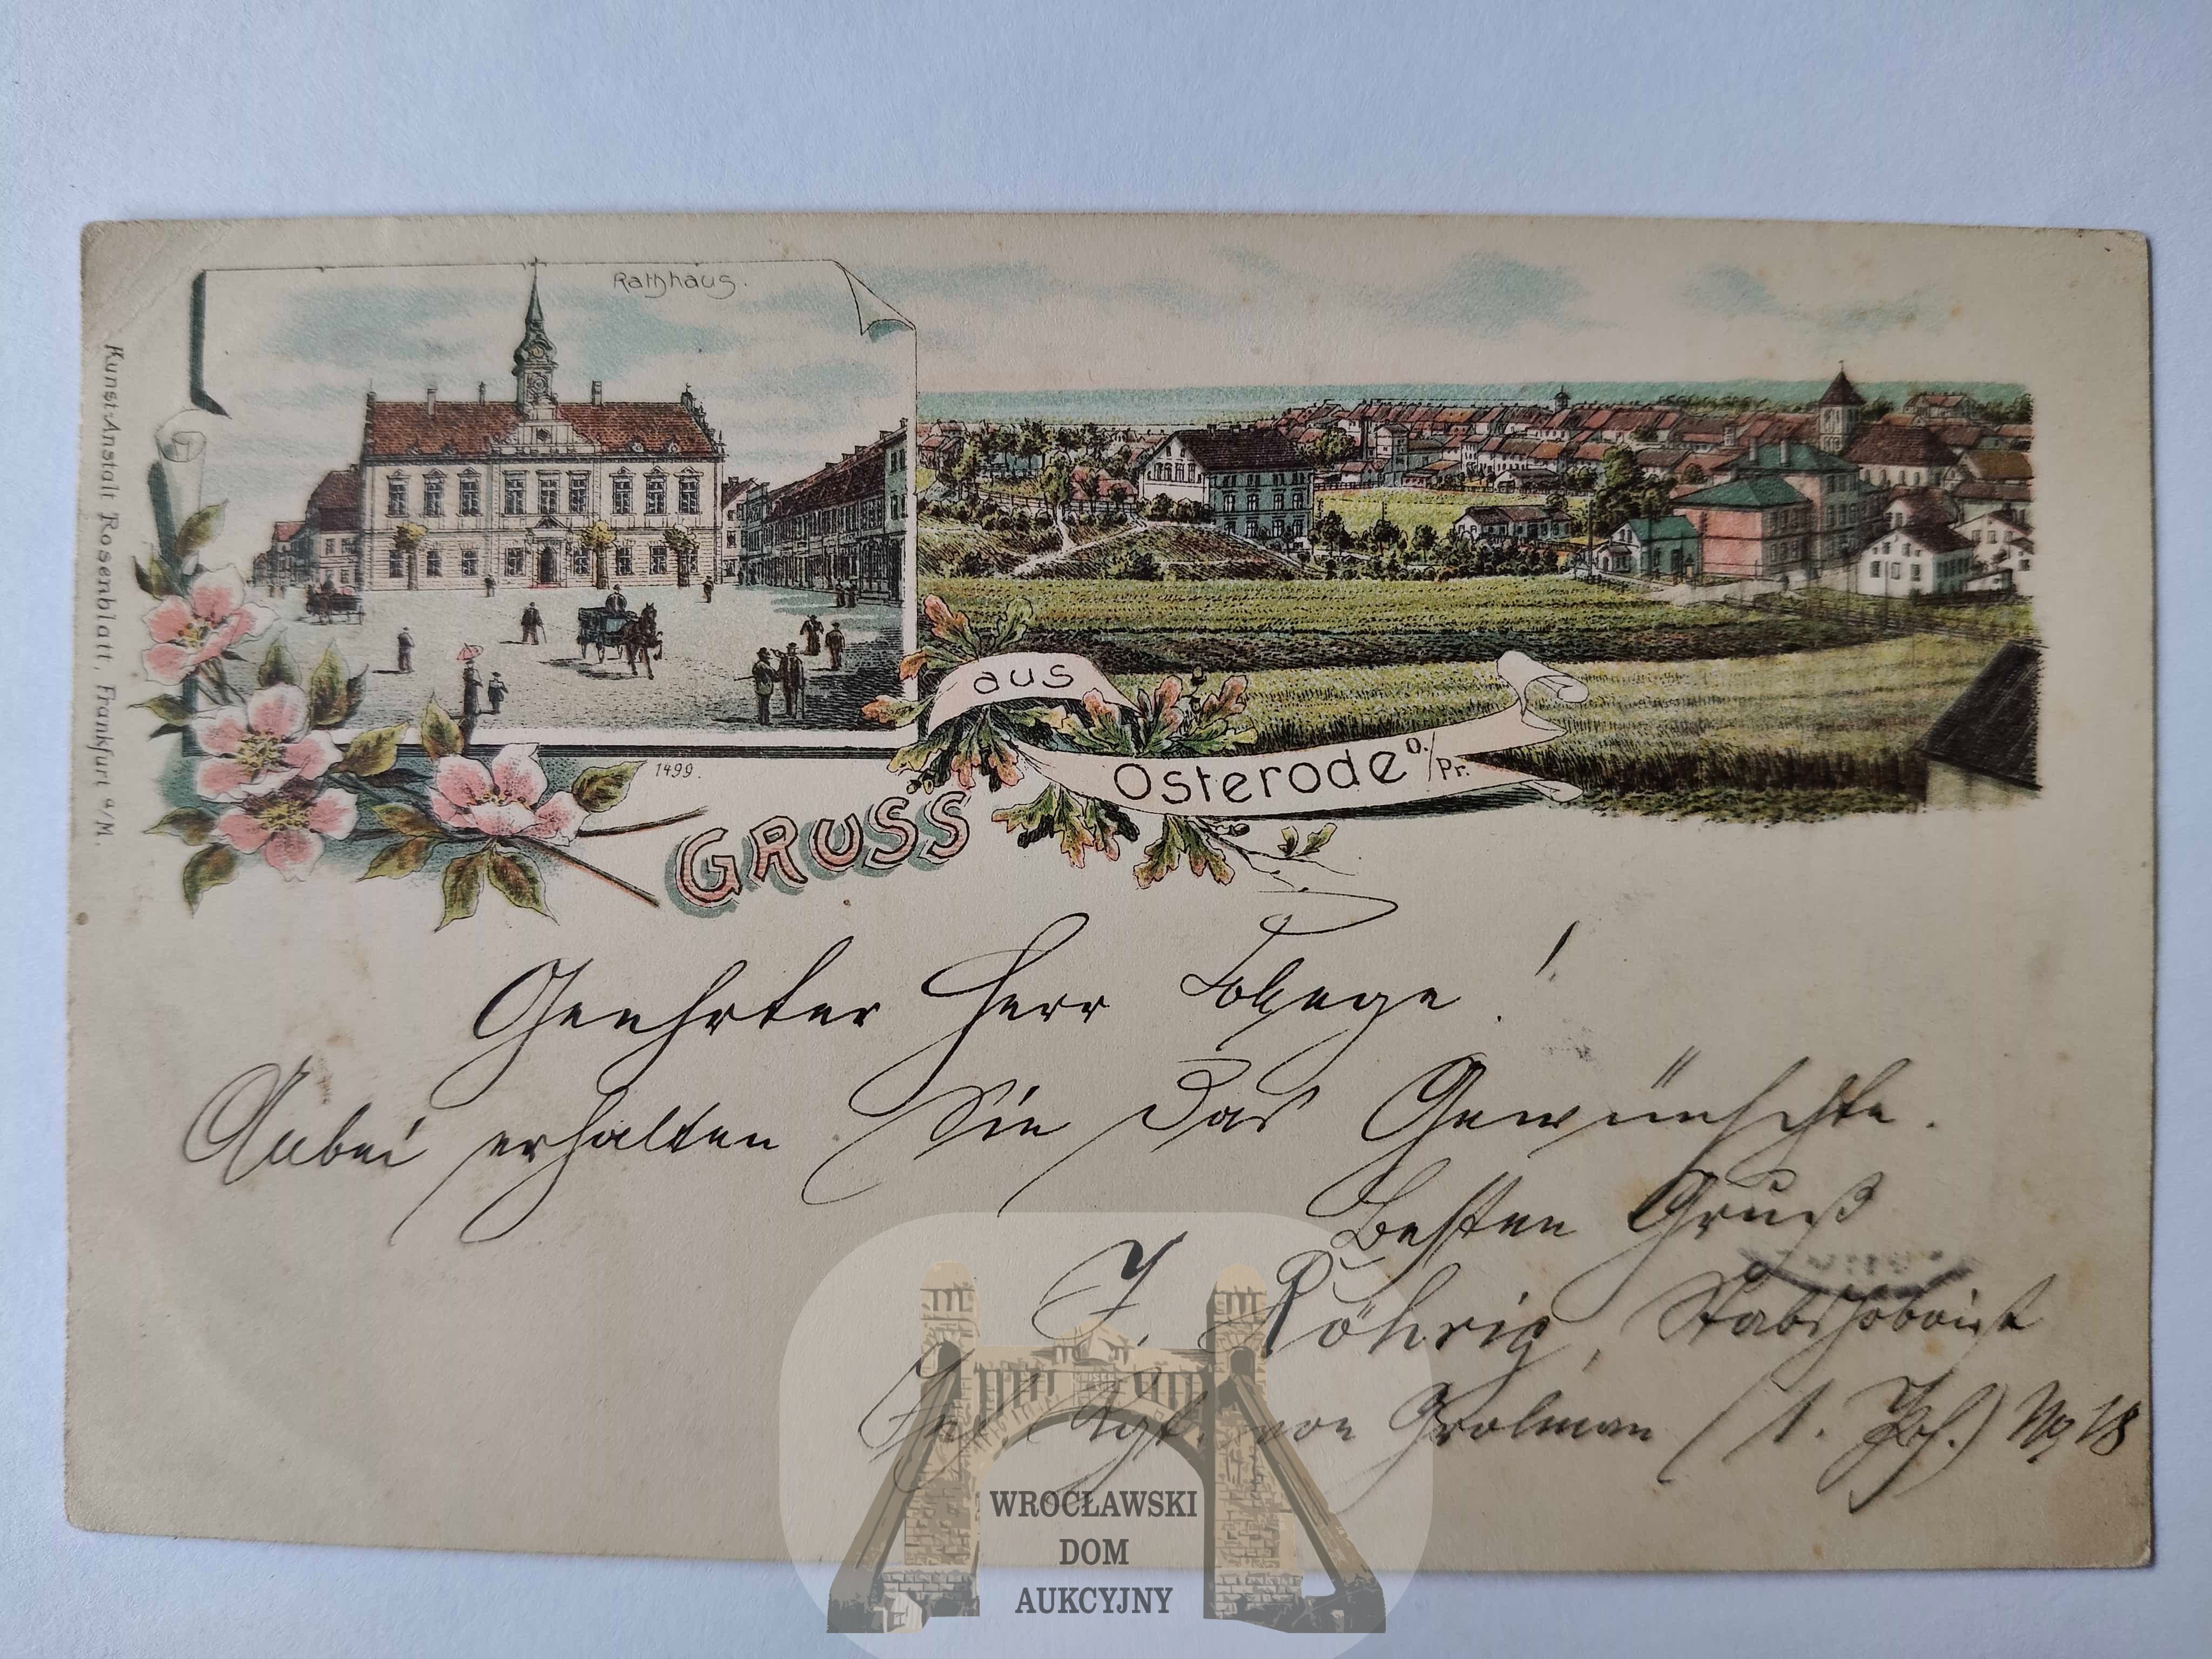 Rathhaus.
Kunst-Anstalt Rosenblatt, Frankfurt a/M.
1499.
GRUSS
aus
Osterode O./Pr.
Geehrter Herr !
Anbei erhalten Sie das Gewünschte.
Besten Gruß
J. Röhrig, Stabshoboist
Inf. Rgt. von Grolman (1. Pos.) No 18
WROCŁAWSKI
DOM
AUKCYJNY